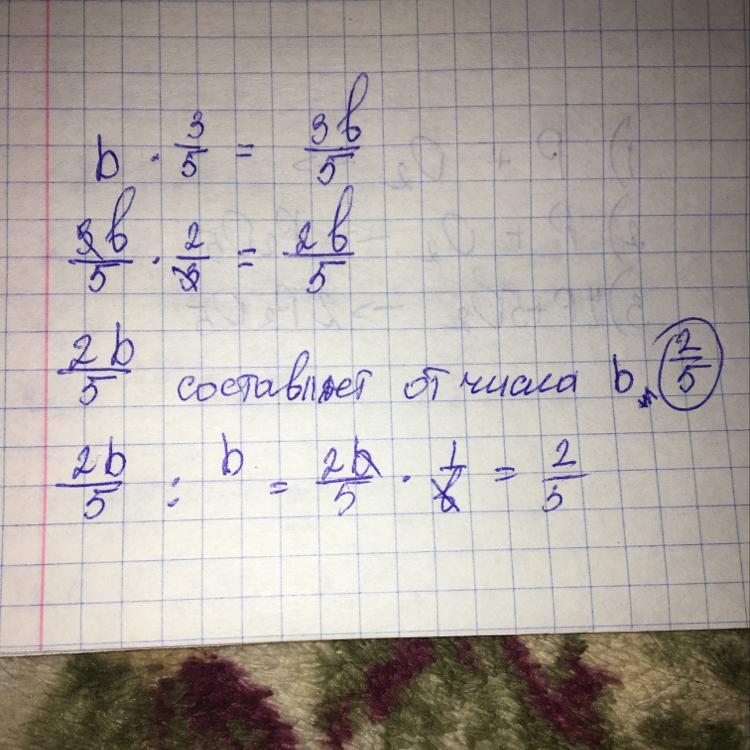 b · 3/5 = 3b/5
3b/5 · 2/3 = 2b/5
2b/5 составляет от числа b 2/5
2b/5 : b = 2b/5 · 1/b = 2/5